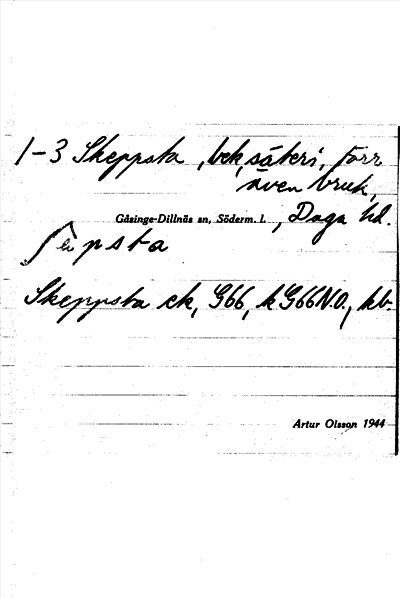 1-3 Skeppsta, bek, säteri, förr
även bruk,
Gåsinge-Dillnäs sn, Söderm. l., Daga hd.
psta
Skeppsta ek, G66, k G66 N.O., kb.
Artur Olsson 1944